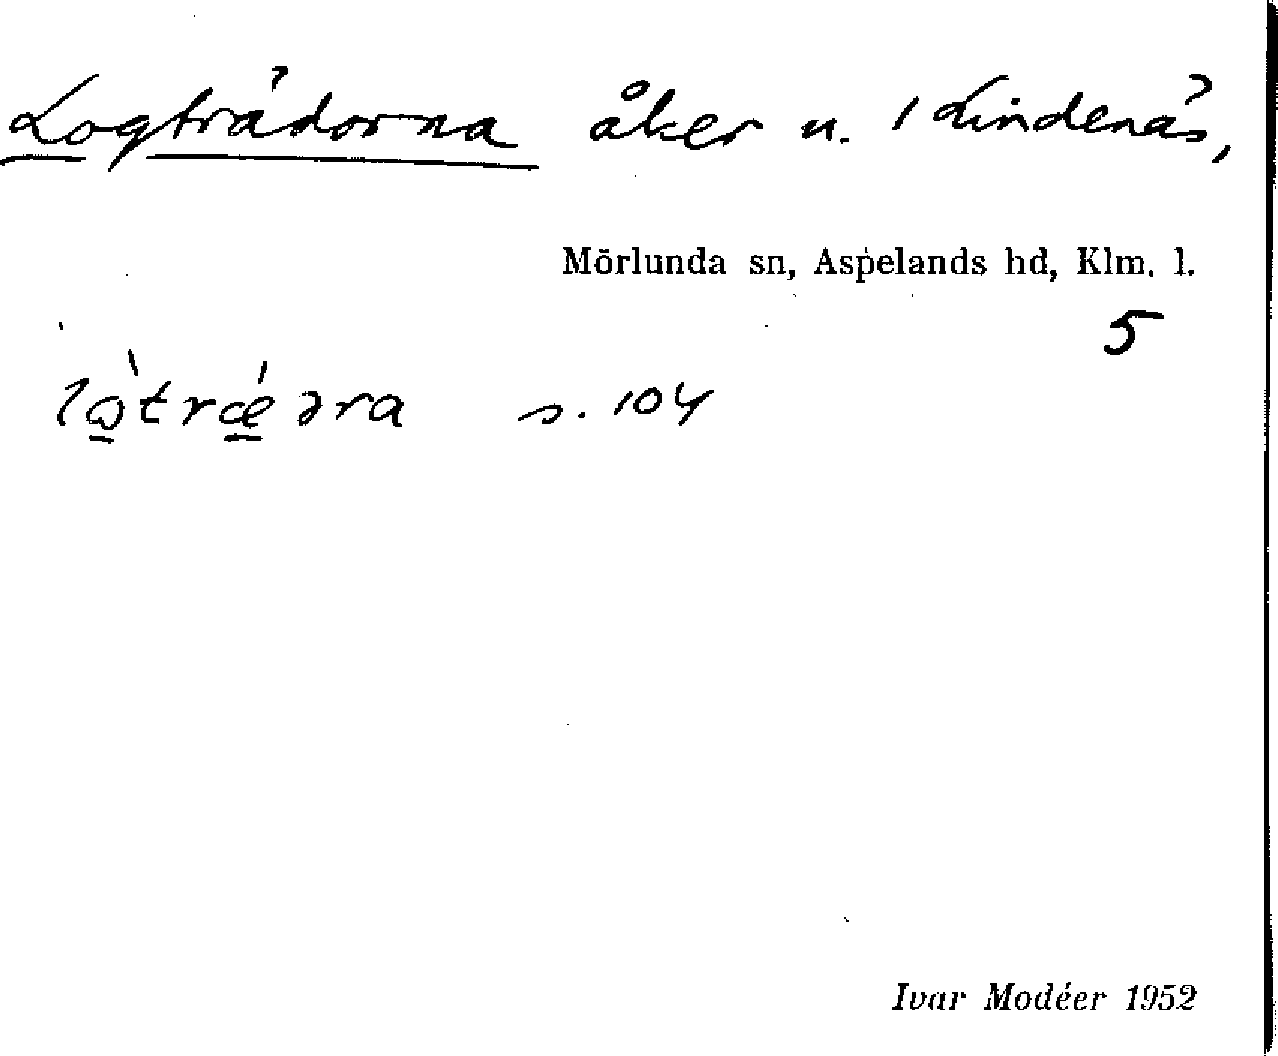 Logträdorna åker u. 1 Lindenäs,
Mörlunda sn, Aspelands hd, Klm. l.
5
lὼ̲trǽ̲əra s. 104
Ivar Modéer 1952